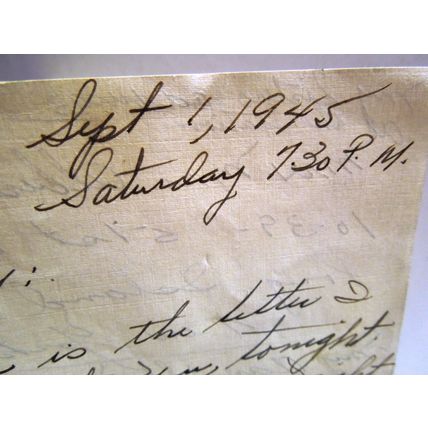 Sept 1, 1945
Saturday 7:30 P.M.
is the letter I
you, tonight.